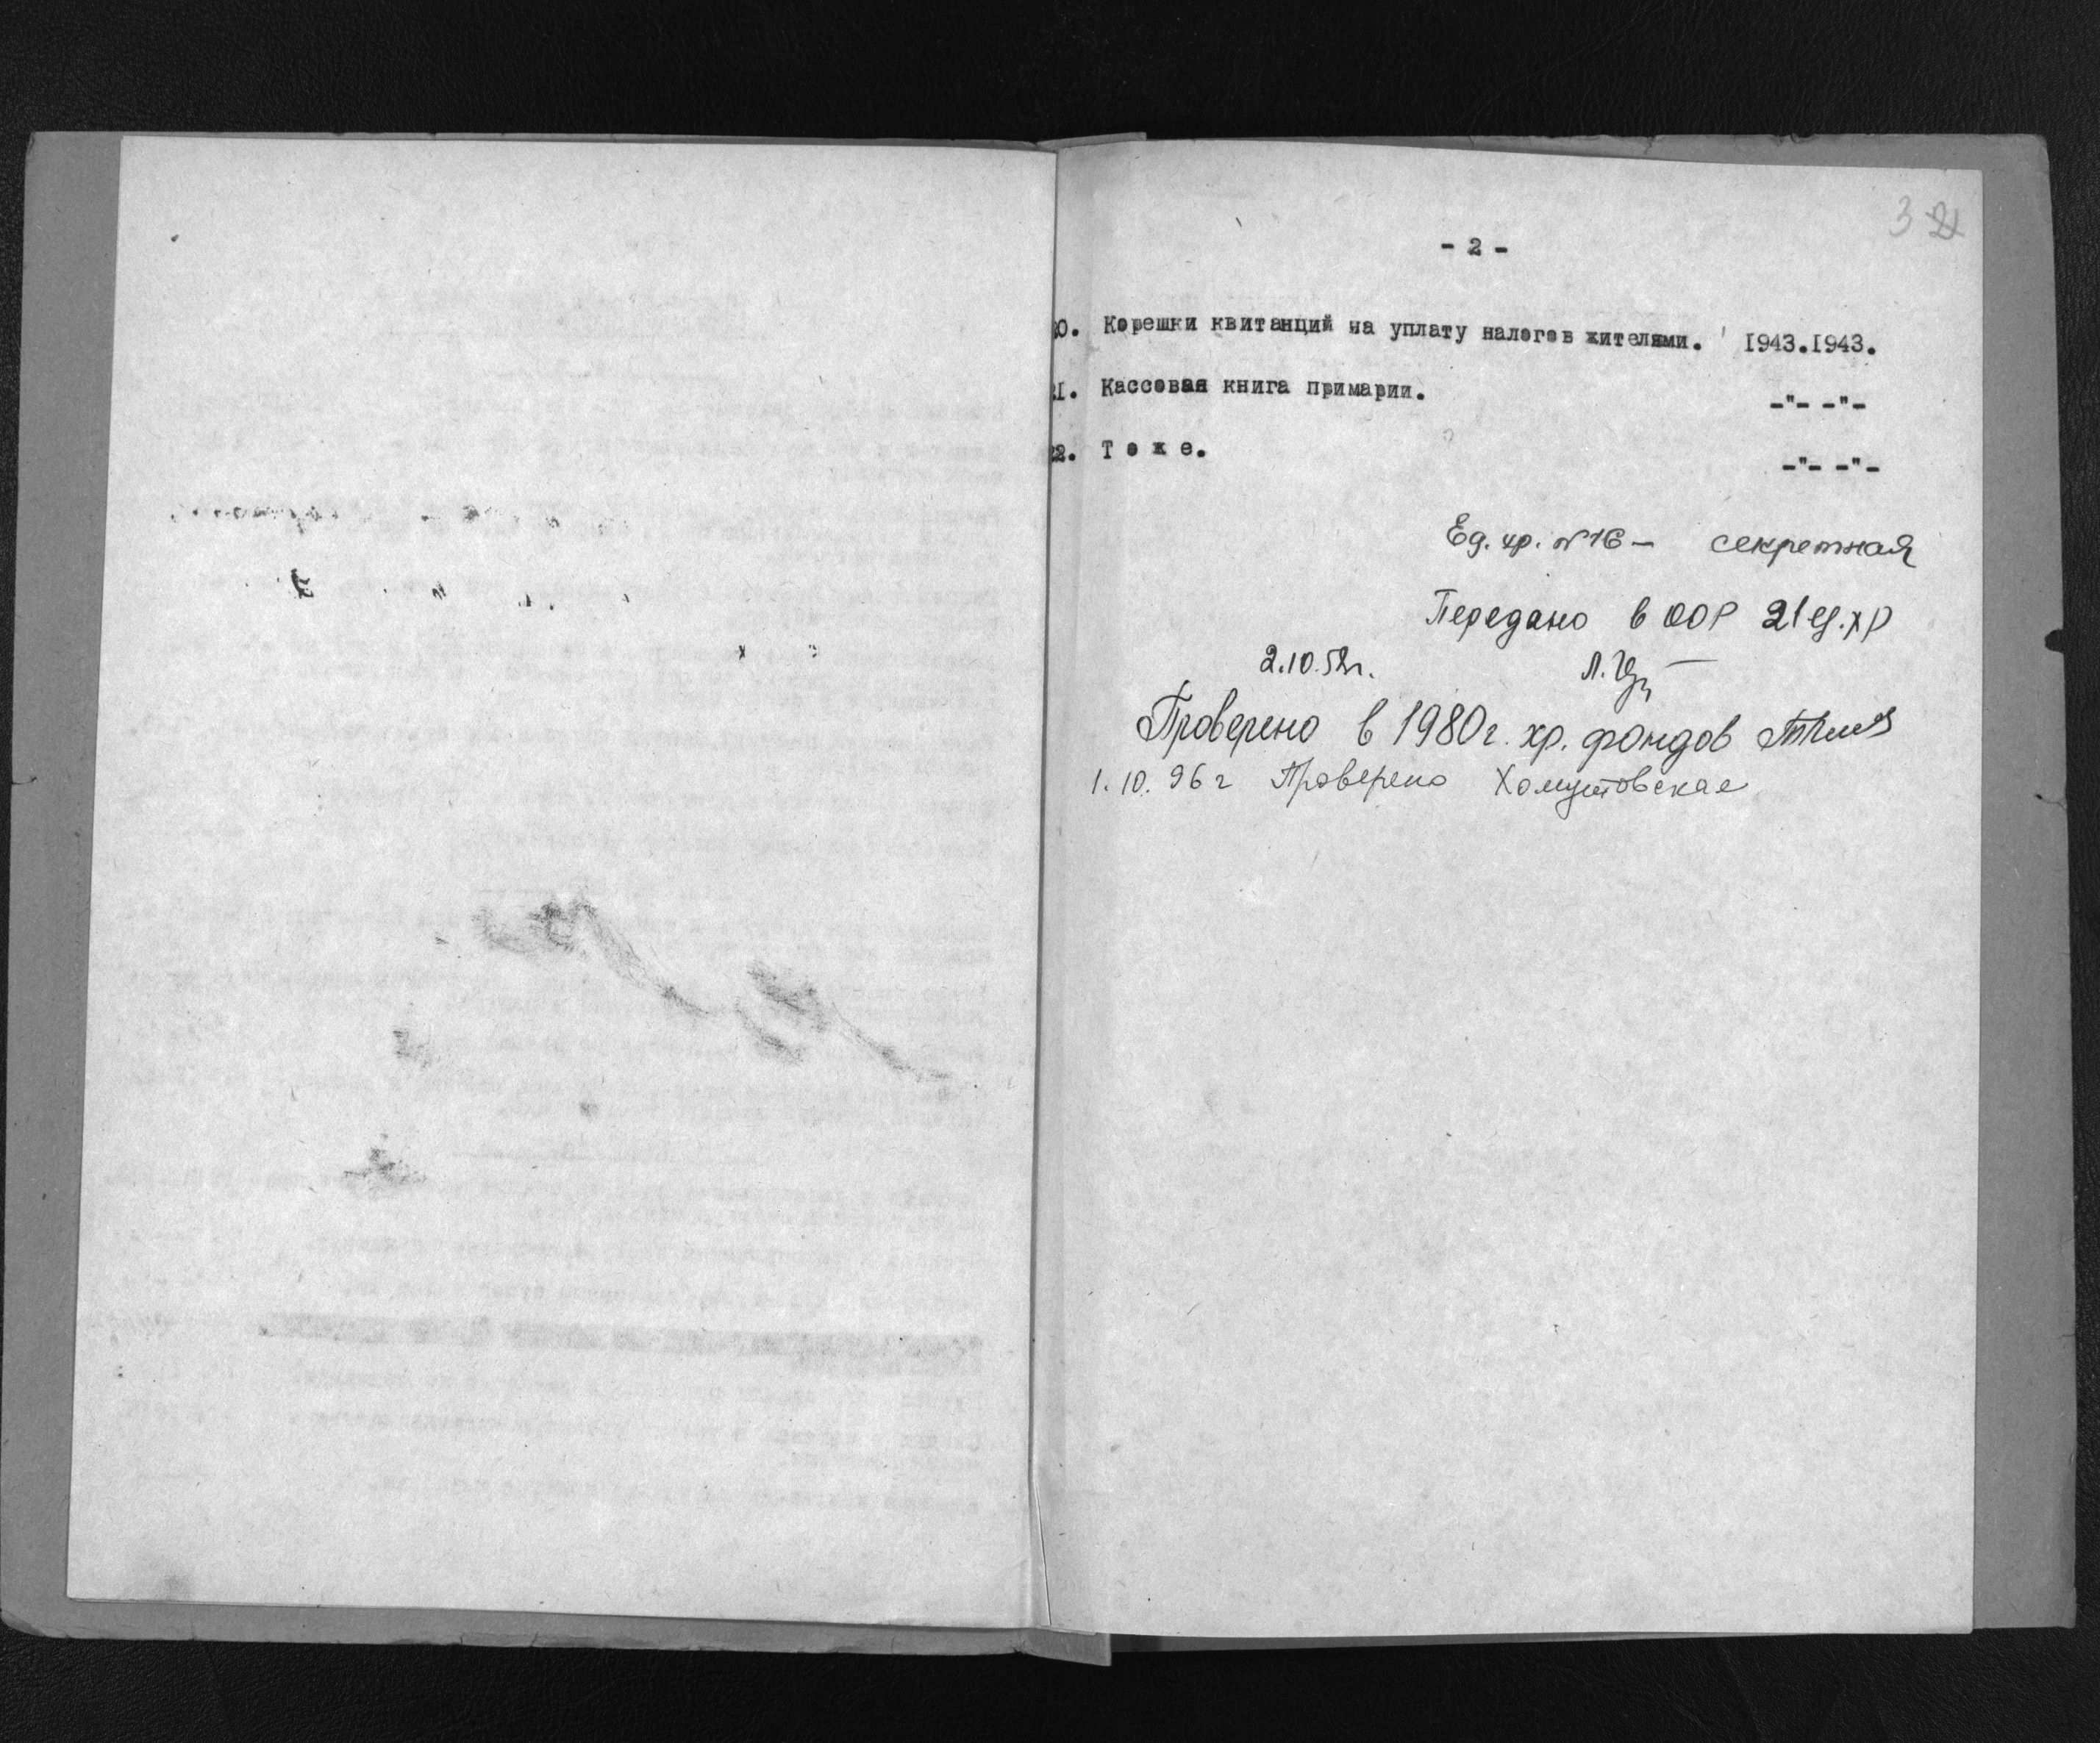 3
- 2 -
20. Корешки квитанций на уплату налогов жителями. 1943.1943.
21. Кассовая книга примарии. -"- -"-
22. Т о ж е. -"- -"-
Ед. хр. №16 – секретная
Передано в ООР 21 ед. хр
2.10.52г.
Проверено в 1980г. хр. фондов
1. 10. 96 г Проверено Хомутовская